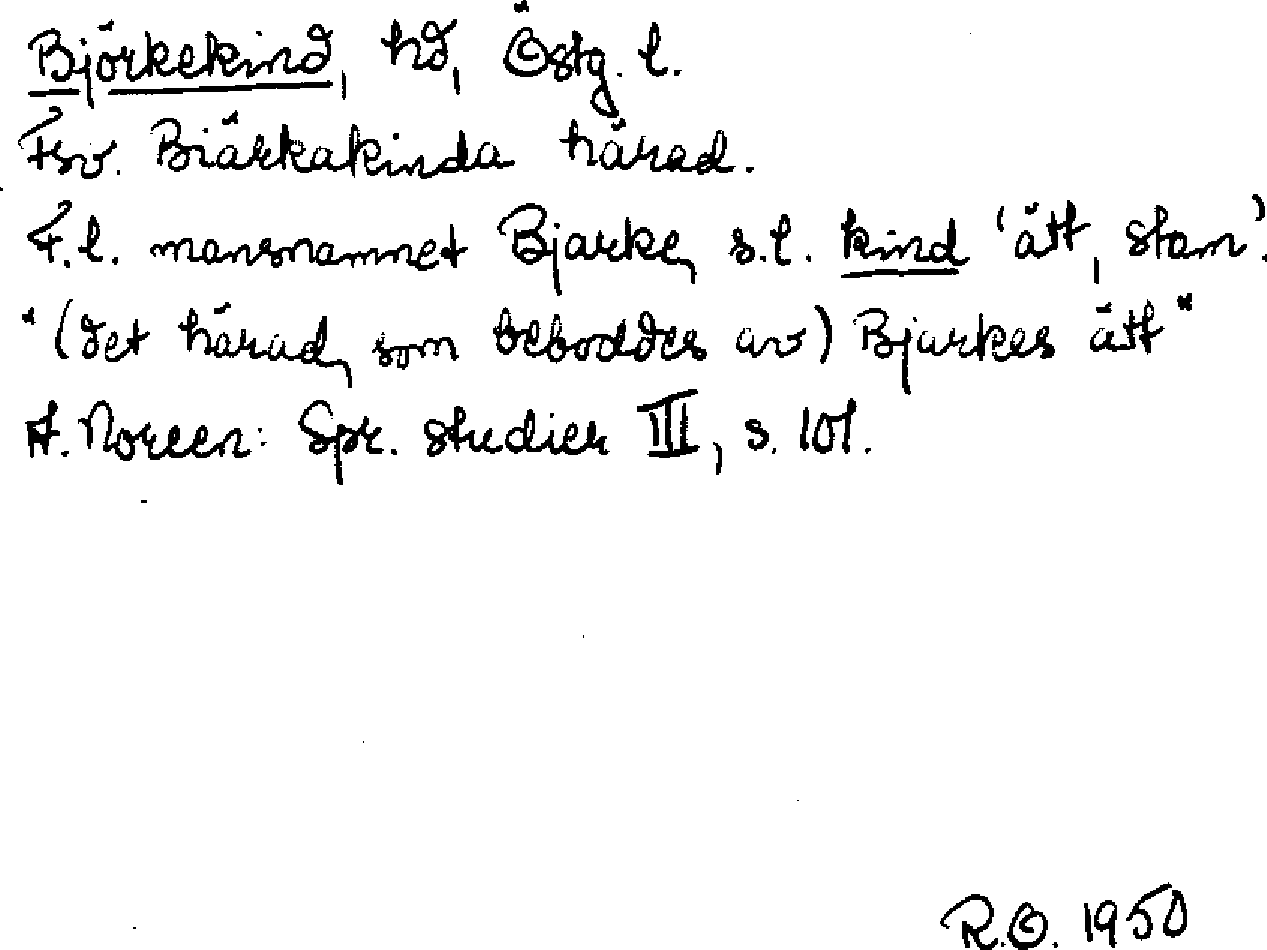 Björkekind, hd, Östg. l.
Fsv. Biärkakinda härad.
F.l. mansnamnet Bjarke, s.l. kind 'ätt, stam'.
"(det härad, som beboddes av) Bjarkes ätt"
A. Noreen: Spr. studier III, s. 101.
R.O. 1950